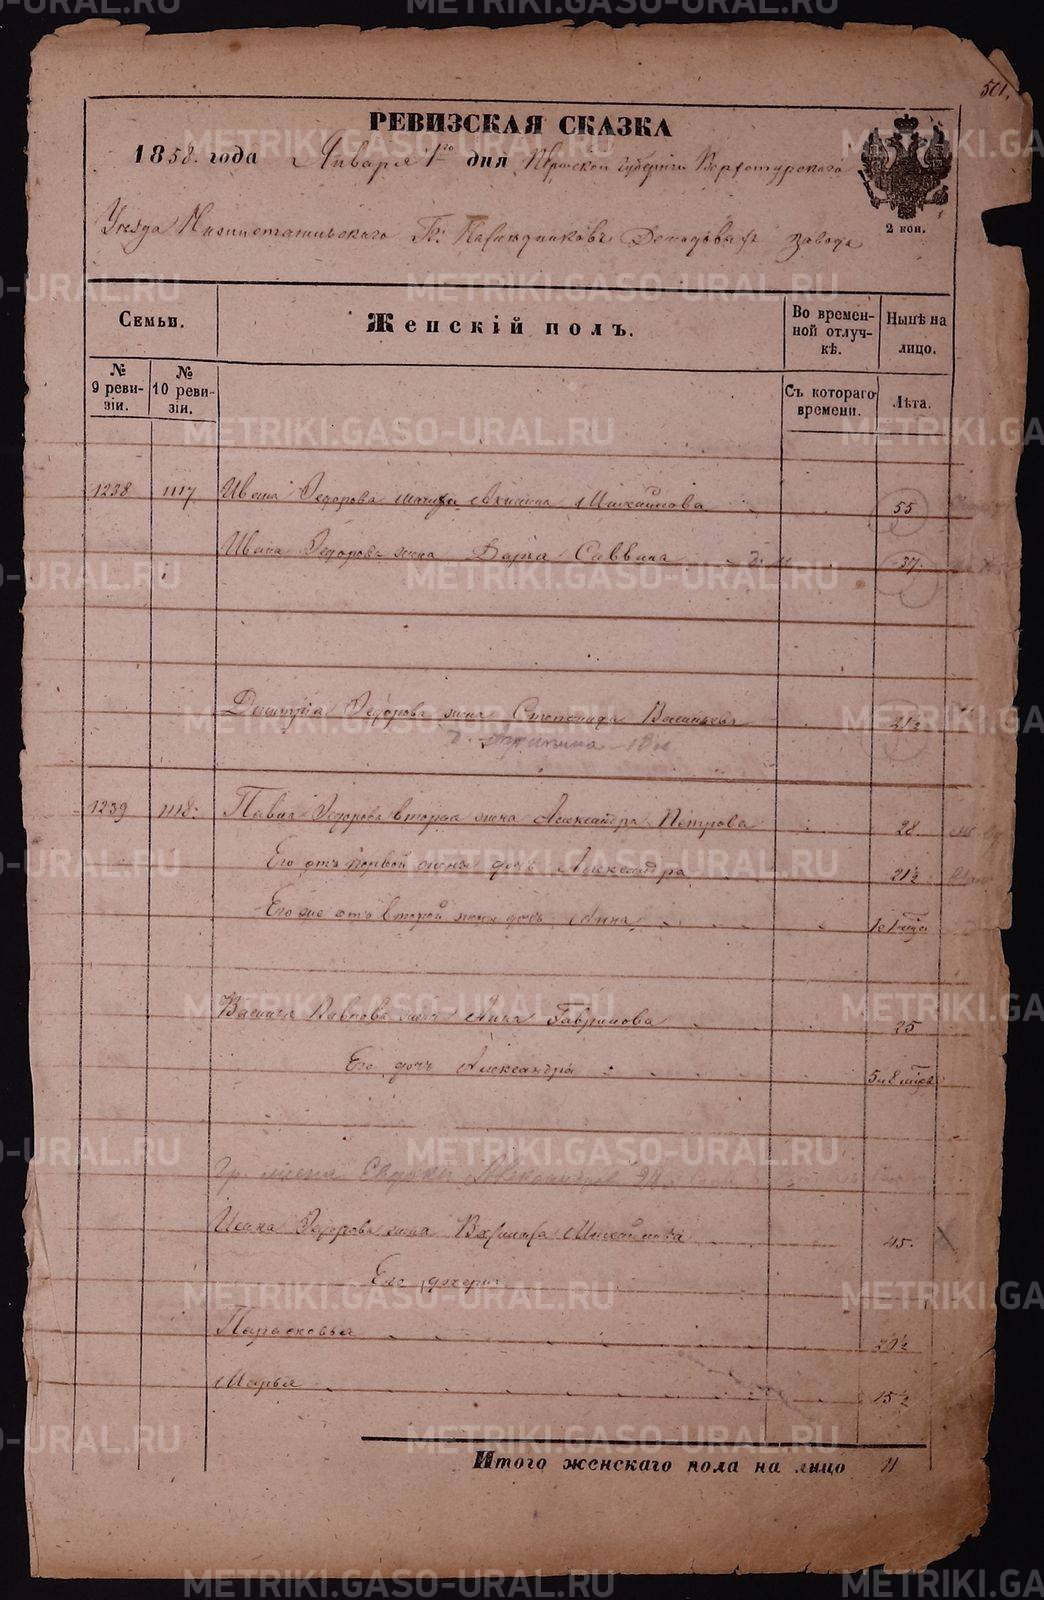 501.
РЕВИЗСКАЯ СКАЗКА
1858 года Января 1го дня Пермской Губернии Верхотурскаго
2 коп.
Уезда Нижнетагильскаго Гг. Наследников Демидовых завода
Семьи.
Женскій полъ.
Во временной отлучкѣ.
Нынѣ на лицо.
№ 9 ревизіи.
№ 10 ревизіи.
Съ котораго времени.
Лѣта.
1238 1117 Ивана Федорова Михайлова 55
Ивана Федорова жена Дарья Саввина 37.
Димитрія Федорова жена Степанида Васильева 21½
1239 1118. Павла Федорова вторая жена Александра Петрова 28
Его отъ первой жены дочь Александра 21½
Его же отъ второй жены дочь Анна
Василья Павлова жена Анна Гаврилова 25
Его дочь Александра 5 и 8 мцов
Федорова жена Михайлова 45.
Его дочери
Парасковья 20½
Марья 15½
Итого женскаго пола на лицо 11
METRIKI.GASO-URAL.RU